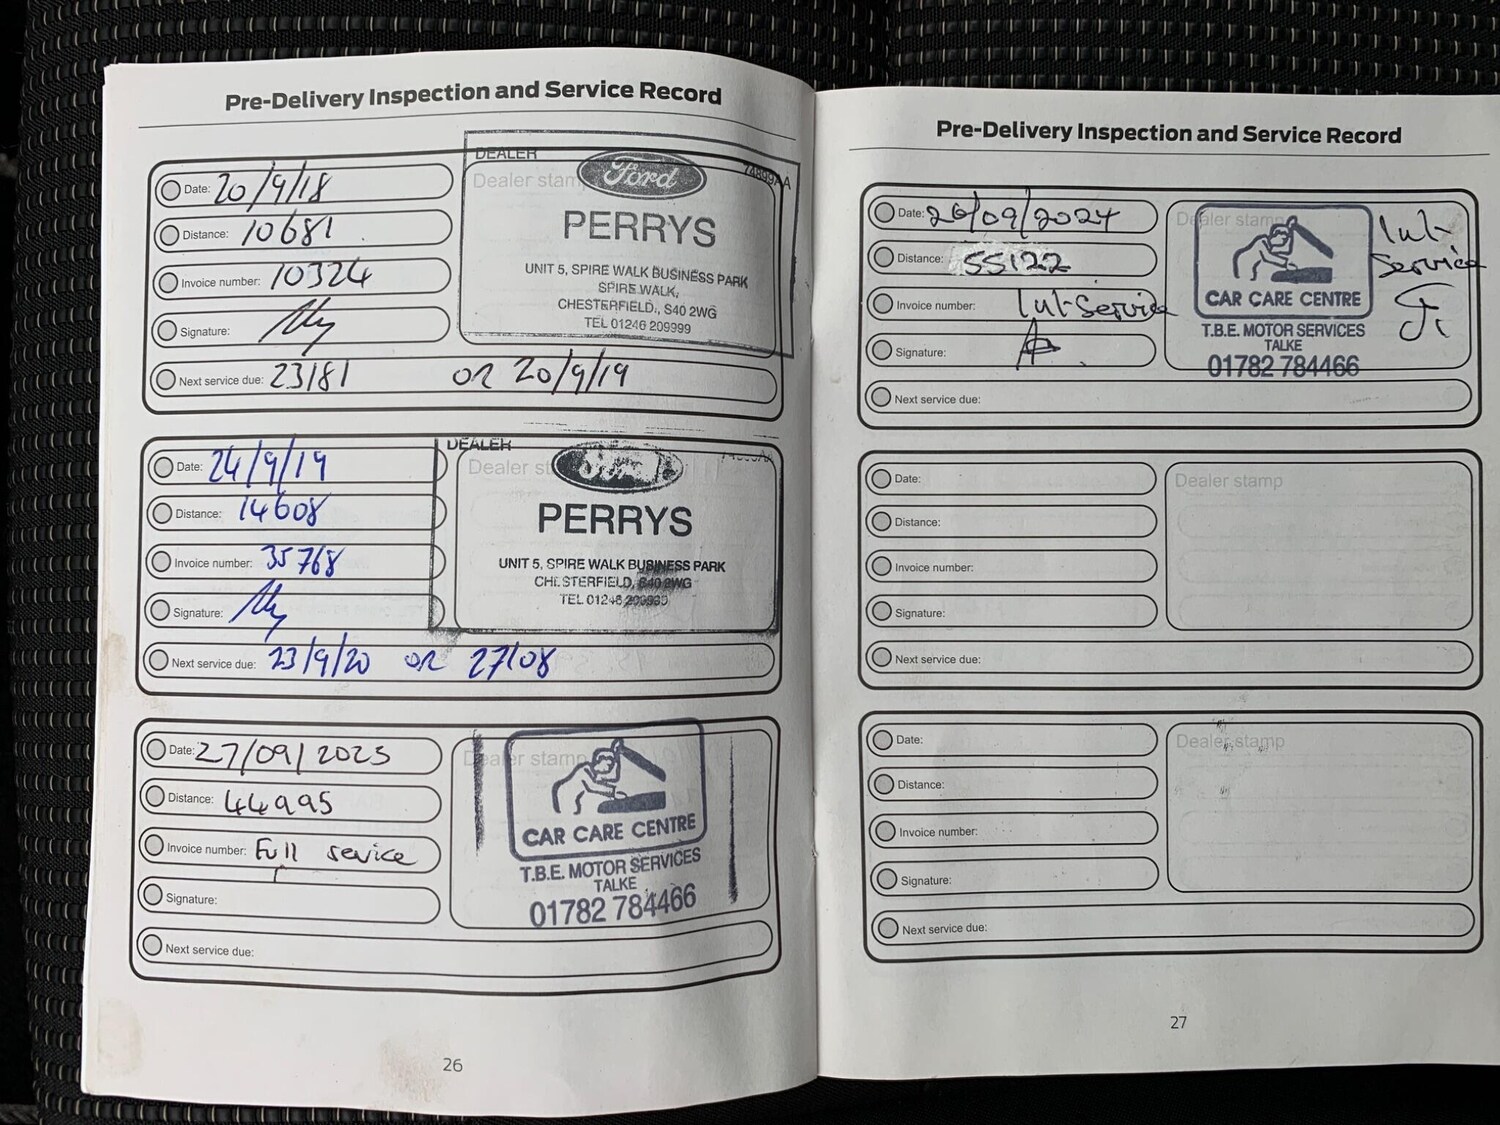 Pre-Delivery Inspection and Service Record
Date: 20/9/18
Distance: 10681
Invoice number: 10324
Signature:
Next service due: 23181 or 20/9/19
DEALER
Dealer stamp
Ford
74899AA
PERRYS
UNIT 5, SPIRE WALK BUSINESS PARK
SPIRE WALK,
CHESTERFIELD., S40 2WG
TEL 01246 209999
Date: 24/9/19
Distance: 14608
Invoice number: 35768
Signature:
Next service due: 23/9/20 or 27108
DEALER
Dealer st
Ford
PERRYS
UNIT 5, SPIRE WALK BUSINESS PARK
CHESTERFIELD, S40 2WG
TEL 01246 209999
Date: 27/09/2023
Distance: 44995
Invoice number: Full service
Signature:
Next service due:
Dealer stamp
CAR CARE CENTRE
T.B.E. MOTOR SERVICES
TALKE
01782 784466
26
Pre-Delivery Inspection and Service Record
Date: 26/09/2024
Distance: 55122
Invoice number: Int-Service
Signature:
Next service due:
Dealer stamp
CAR CARE CENTRE
T.B.E. MOTOR SERVICES
TALKE
01782 784466
Int-
Service
Date:
Distance:
Invoice number:
Signature:
Next service due:
Dealer stamp
Date:
Distance:
Invoice number:
Signature:
Next service due:
Dealer stamp
27